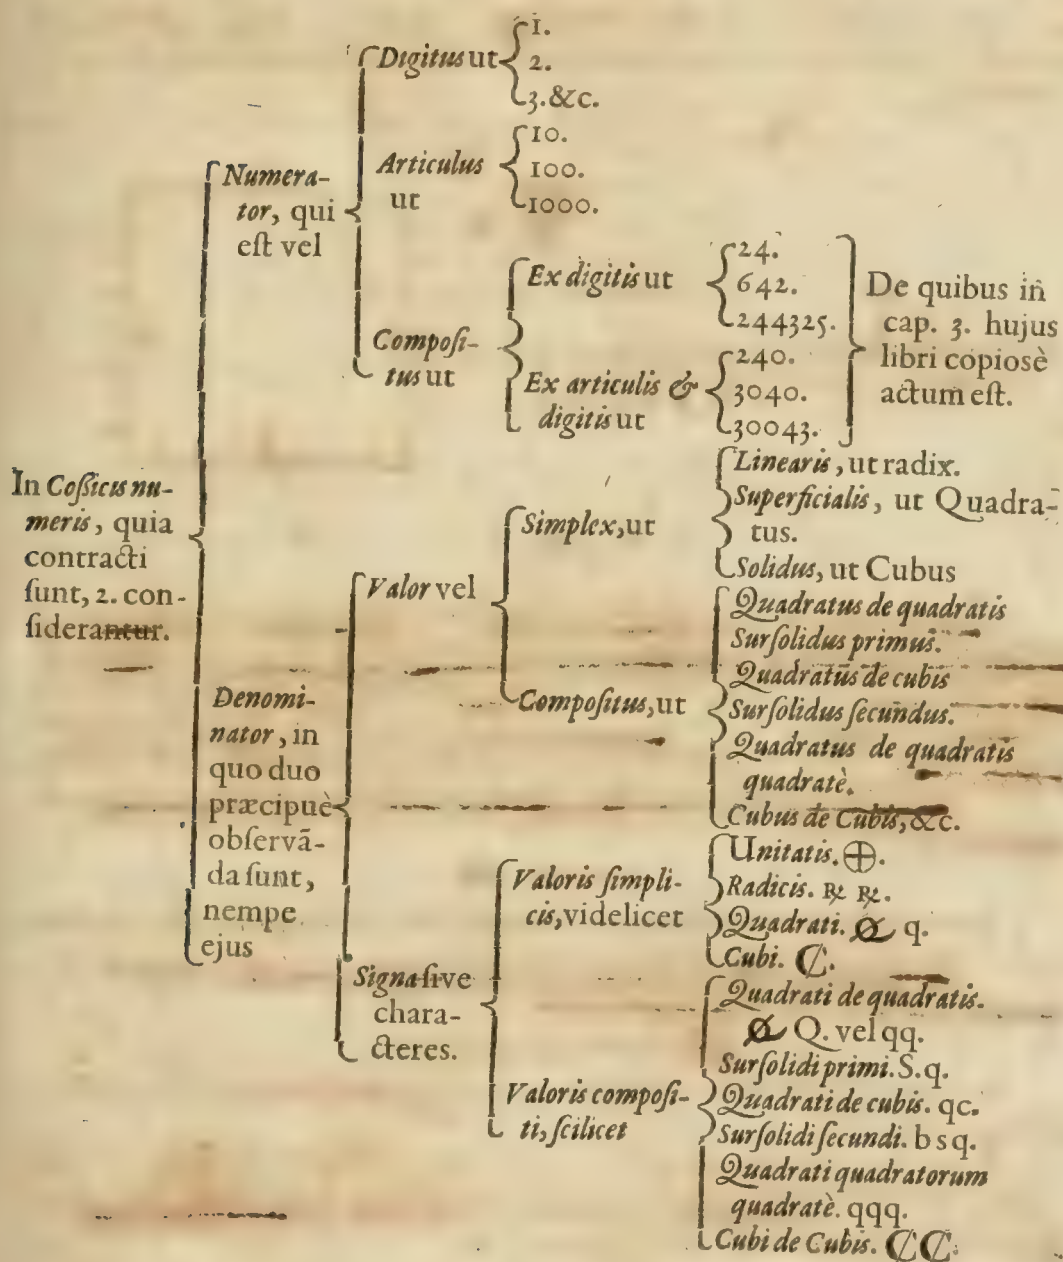 In Coſſicis nu-
meris, quia
contracti
ſunt, 2. con-
ſiderantur.
Numera-
tor, qui
eſt vel
Digitus ut
1.
2.
3. &c.
Articulus
ut
10.
100.
1000.
Compoſi-
tus ut
Ex digitis ut
24.
642.
244325.
Ex articulis &
digitis ut
240.
3040.
30043.
De quibus in
cap. 3. hujus
libri copiosè
actum eſt.
Denomi-
nator, in
quo duo
præcipuè
obſervã-
da ſunt,
nempe
ejus
Valor vel
Simplex, ut
Linearis, ut radix.
Superficialis, ut Quadra-
tus.
Solidus, ut Cubus
Compoſitus, ut
Quadratus de quadratis
Surſolidus primus.
Quadratus de cubis
Surſolidus ſecundus.
Quadratus de quadratis
quadratè.
Cubus de Cubis, &c.
Signa ſive
chara-
cteres.
Valoris ſimpli-
cis, videlicet
Unitatis. ⊕.
Radicis. ℞ ℞.
Quadrati. q.
Cubi. ₡.
Valoris compoſi-
ti, ſcilicet
Quadrati de quadratis.
Q. vel qq.
Surſolidi primi. S. q.
Quadrati de cubis. qc.
Surſolidi ſecundi. b s q.
Quadrati quadratorum
quadratè. qqq.
Cubi de Cubis. ₡₡.